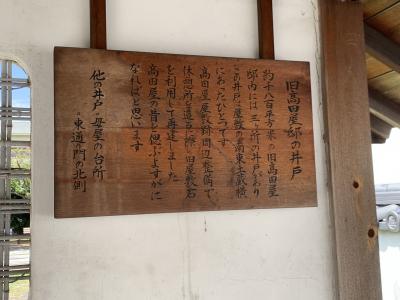 旧高田屋邸の井戸
約千八百平方米の旧高田屋
邸内には三ヶ所の井戸があり
この井戸は屋敷の南東土蔵横
にあったひとつです。
高田屋屋敷跡周辺整備で、
休憩所を造る際、旧屋敷石
を利用して再建しました
高田屋の昔を偲ぶよすがに
なればと思います
他の井戸 ・母屋の台所
・東通り門の北側